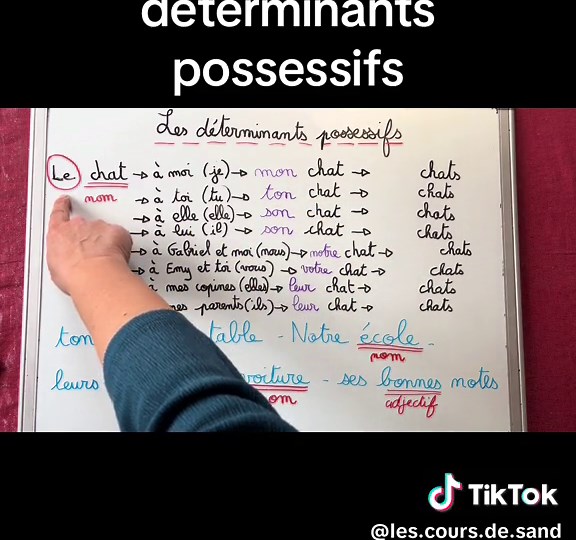 déterminants
possessifs
Les déterminants possessifs
Le chat → à moi (je) → mon chat → chats
nom → à toi (tu) → ton chat → chats
→ à elle (elle) → son chat → chats
→ à lui (il) → son chat → chats
→ à Gabriel et moi (nous) → notre chat → chats
→ à Emy et toi (vous) → votre chat → chats
à mes copines (elles) → leur chat → chats
mes parents (ils) → leur chat → chats
ton table - Notre école -
nom
leurs voiture - ses bonnes notes
adjectif
TikTok
@les.cours.de.sand